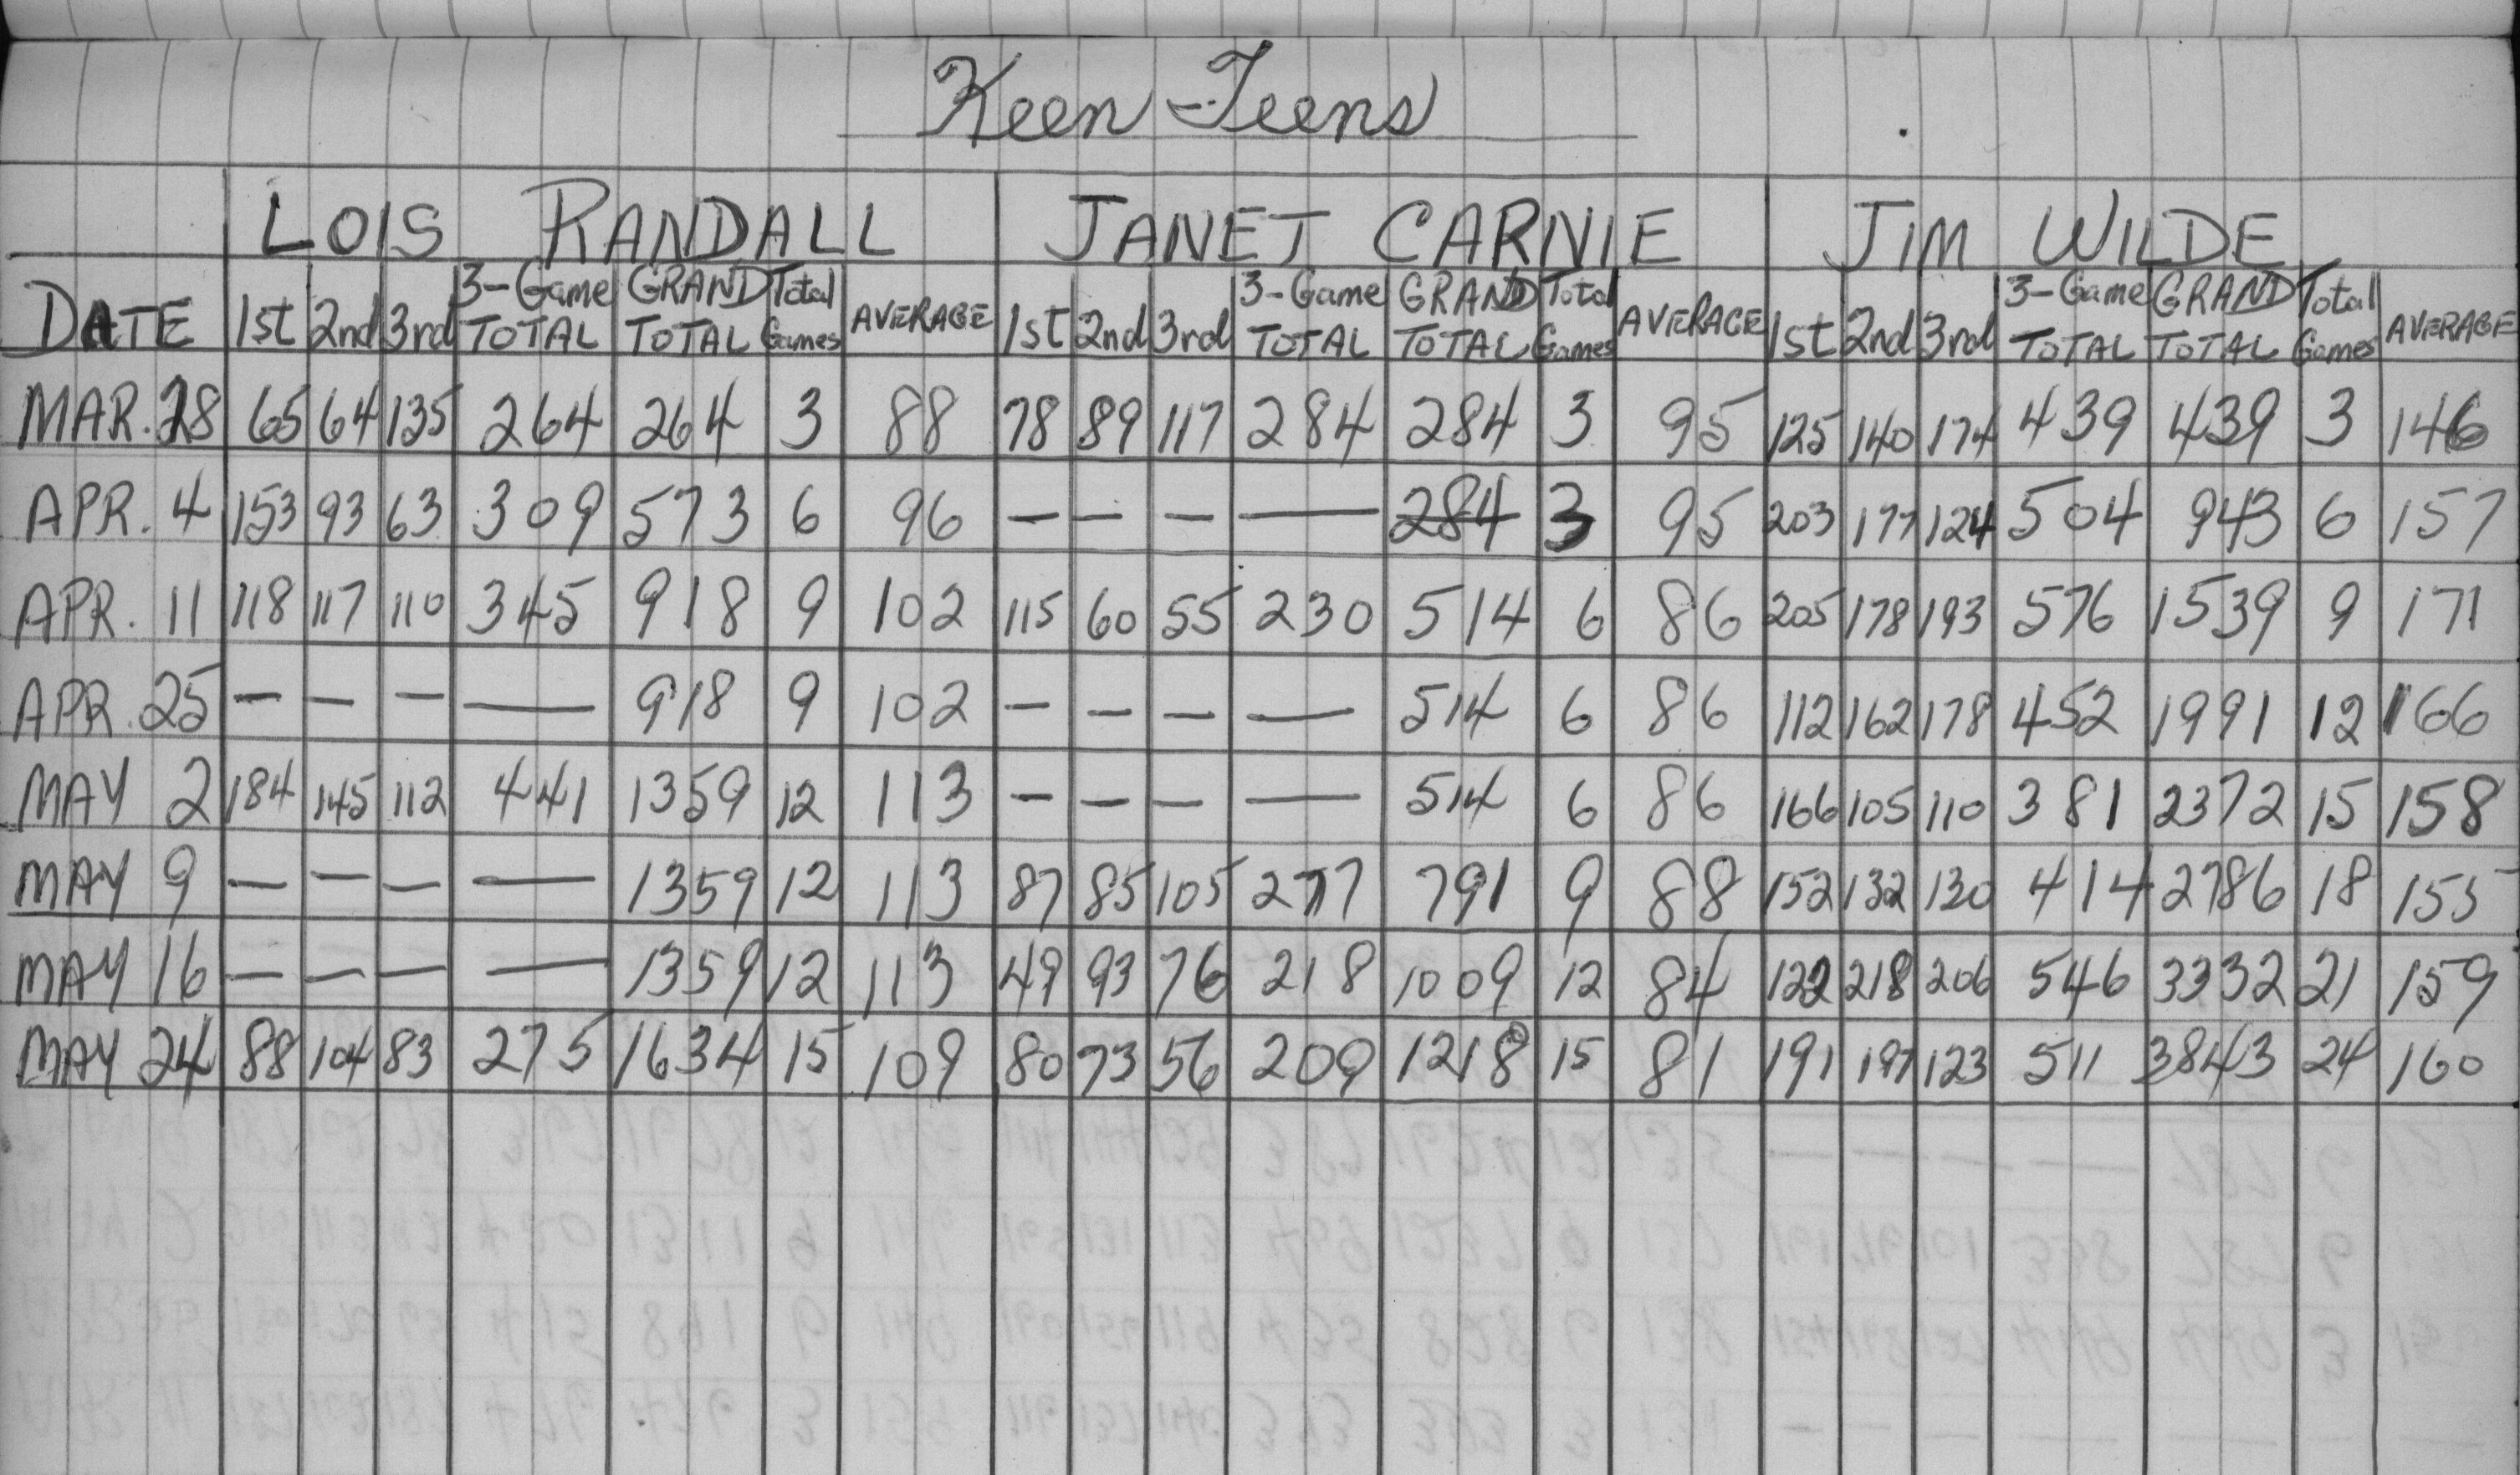 Keen-Teens
LOIS RANDALL JANET CARNIE JIM WILDE
DATE 1st 2nd 3rd 3-Game TOTAL GRAND TOTAL Total Games AVERAGE 1st 2nd 3rd 3-Game TOTAL GRAND TOTAL Total Games AVERAGE 1st 2nd 3rd 3-Game TOTAL GRAND TOTAL Total Games AVERAGE
MAR. 28 65 64 135 264 264 3 88 78 89 117 284 284 3 95 125 140 174 439 439 3 146
APR. 4 153 93 63 309 573 6 96 — — — — 284 3 95 203 177 124 504 943 6 157
APR. 11 118 117 110 345 918 9 102 115 60 55 230 514 6 86 205 178 193 576 1539 9 171
APR. 25 — — — — 918 9 102 — — — — 514 6 86 112 162 178 452 1991 12 166
MAY 2 184 145 112 441 1359 12 113 — — — — 514 6 86 166 105 110 381 2372 15 158
MAY 9 — — — — 1359 12 113 87 85 105 277 791 9 88 152 132 130 414 2786 18 155
MAY 16 — — — — 1359 12 113 49 93 76 218 1009 12 84 122 218 206 546 3332 21 159
MAY 24 88 104 83 275 1634 15 109 80 73 56 209 1218 15 81 191 197 123 511 3843 24 160